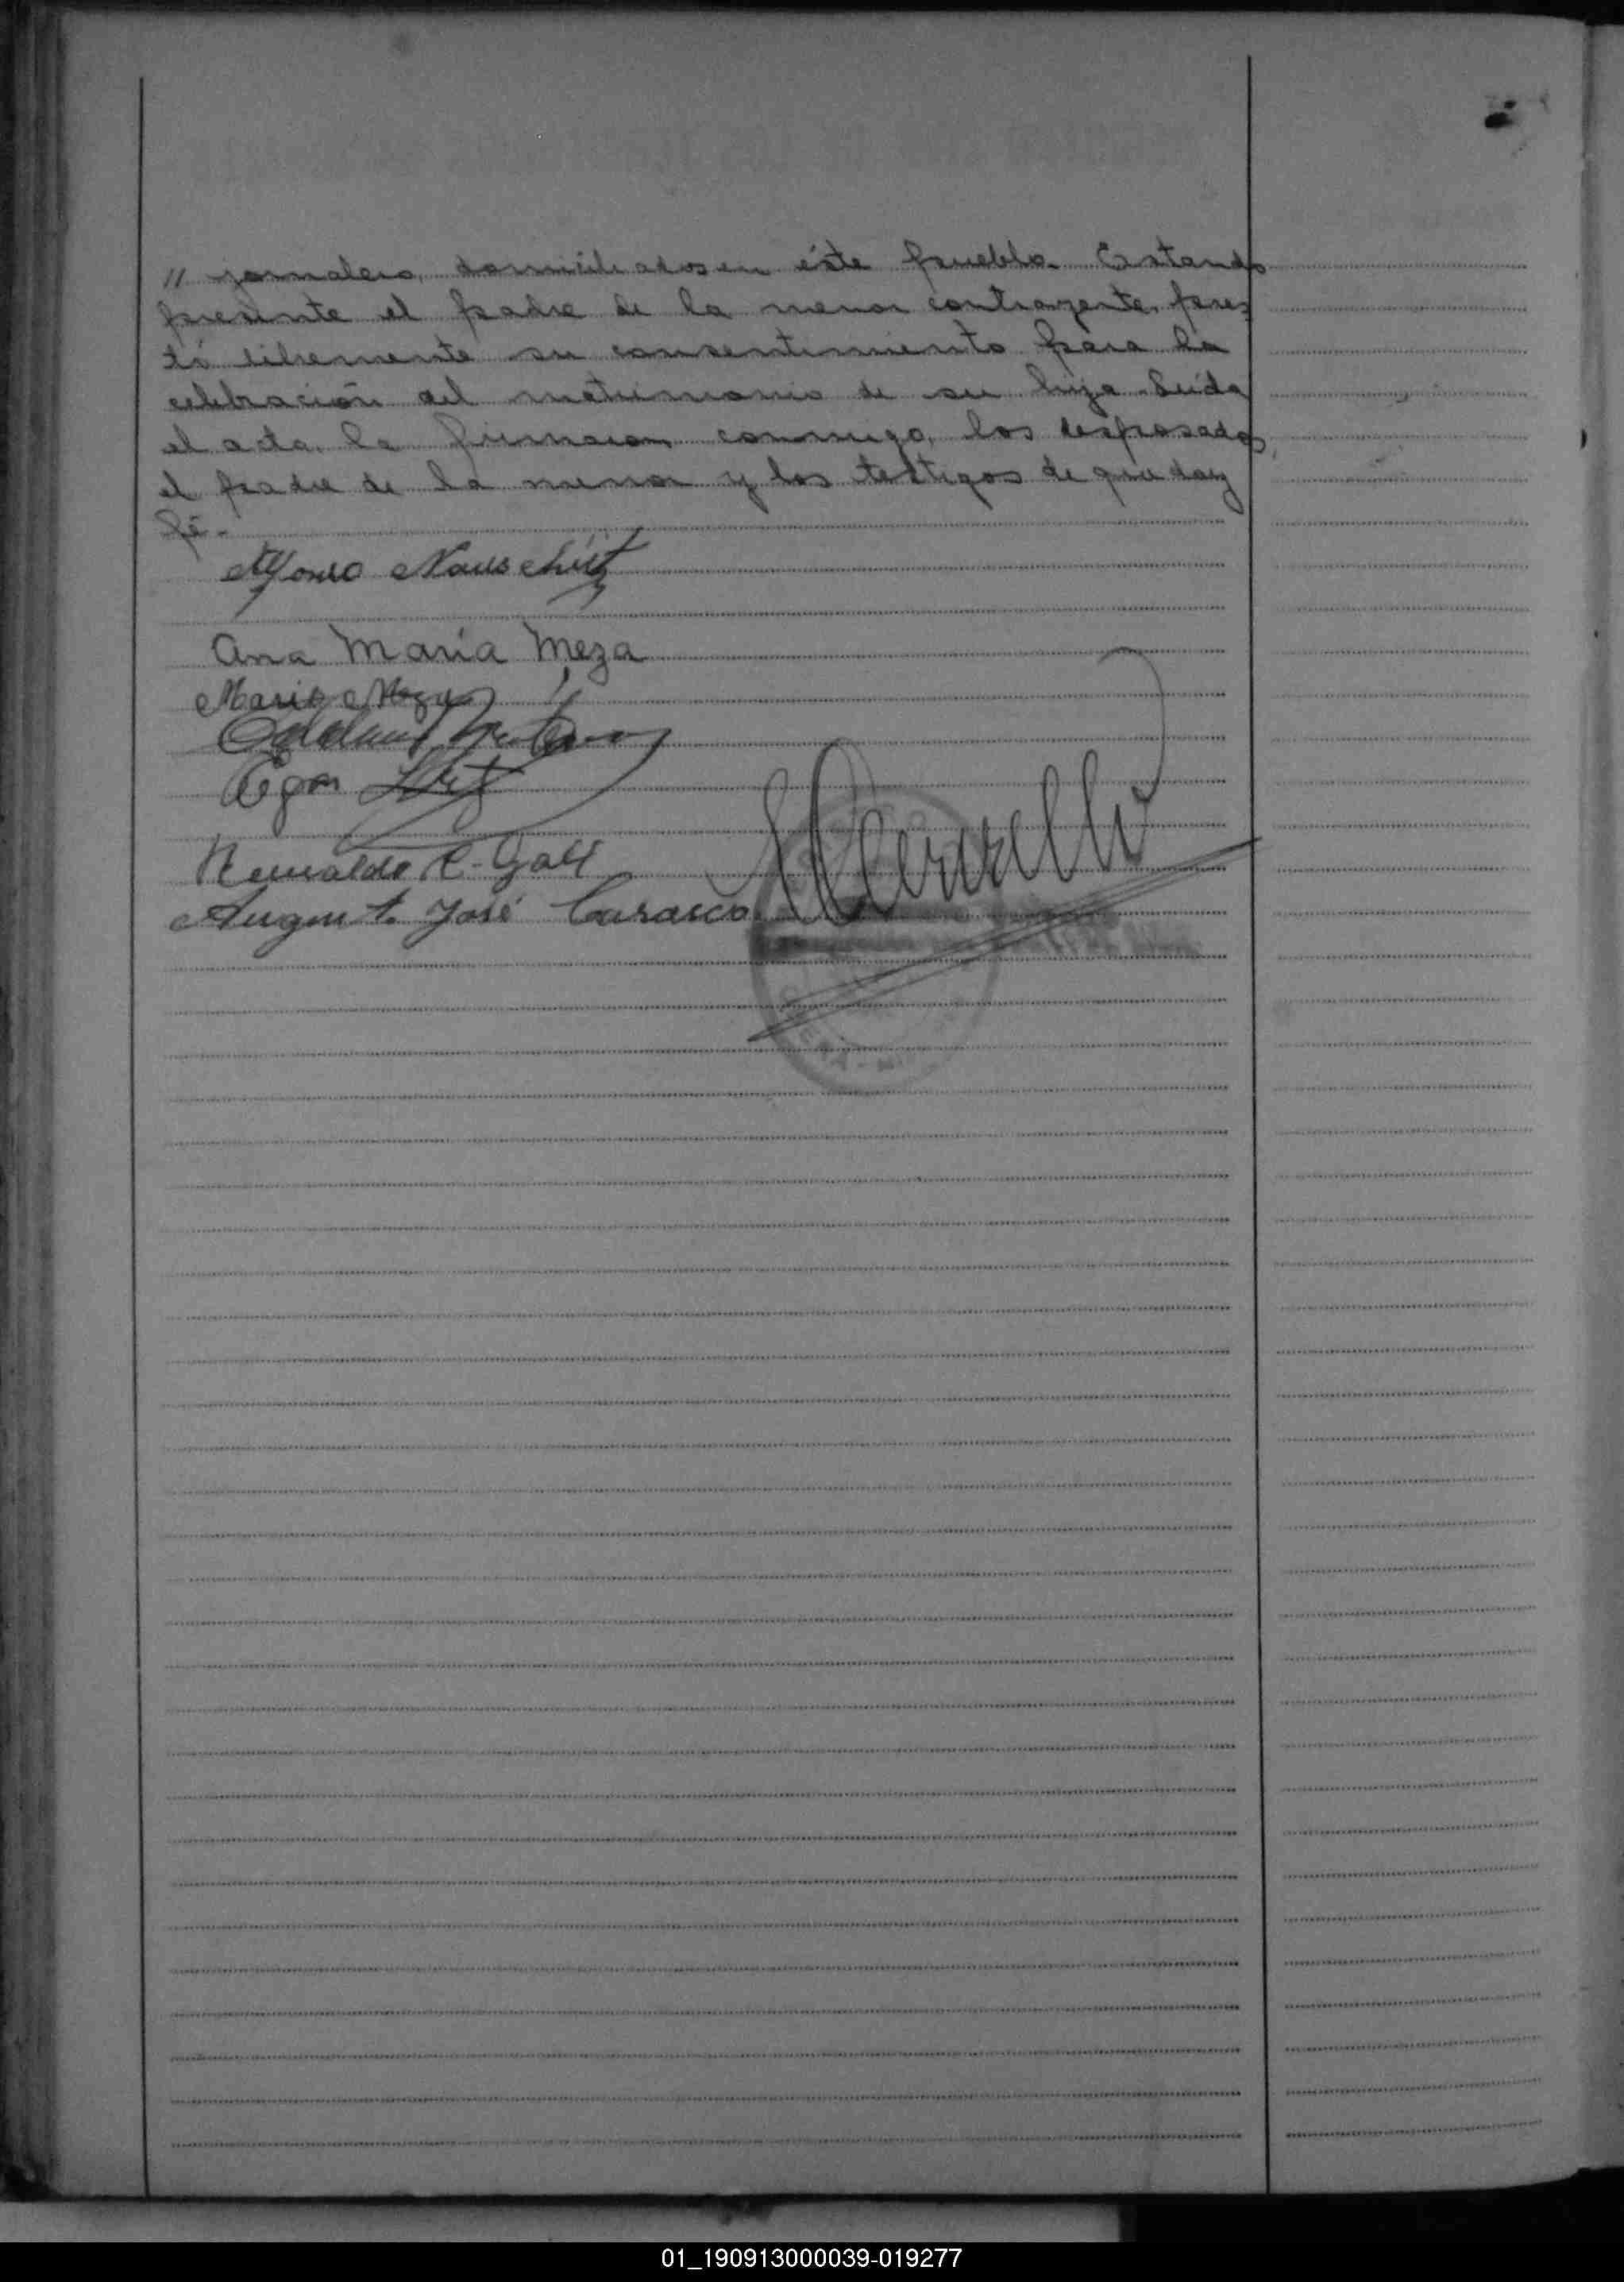 " jornalero, domiciliados en éste pueblo. Estando
presente el padre de la menor contrayente, pres
tó libremente su consentimiento para la
celebración del matrimonio de su hija. Leída
el acta, la firmaron conmigo, los desposados,
el padre de la menor y los testigos de que doy
fé.-
Ana María Meza
Mario Meza
Egon
Reinaldo R. Gall
August. José Carasco
01_190913000039-019277